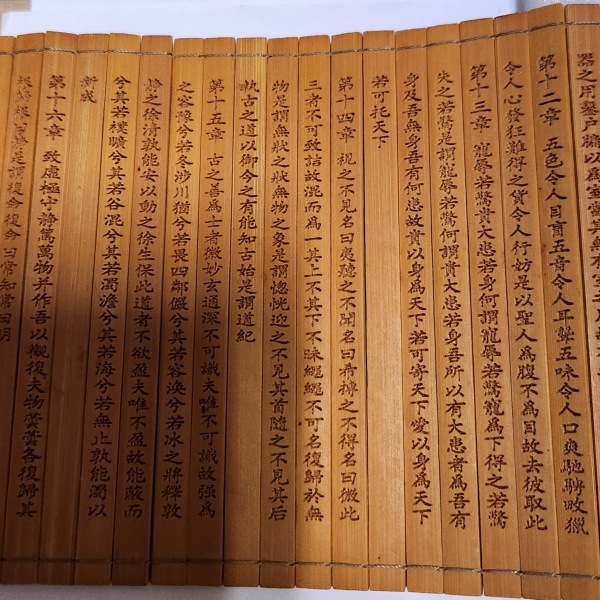 器之用鑿戶牖以為室當其無有室之用故
第十二章 五色令人目盲五音令人耳聾五味令人口爽馳騁畋獵
令人心發狂難得之貨令人行妨是以聖人為腹不為目故去彼取此
第十三章 寵辱若驚貴大患若身何謂寵辱若驚寵為下得之若驚
失之若驚是謂寵辱若驚何謂貴大患若身吾所以有大患者為吾有
身及吾無身吾有何患故貴以身為天下若可寄天下愛以身為天下
若可托天下
第十四章 視之不見名曰夷聽之不聞名曰希摶之不得名曰微此
三者不可致詰故混而為一其上不其下不昧繩繩不可名復歸於無
物是謂無狀之狀無物之象是謂惚恍迎之不見其首隨之不見其后
執古之道以御今之有能知古始是謂道紀
第十五章 古之善為士者微妙玄通深不可識夫唯不可識故强為
之容豫兮若冬涉川猶兮若畏四鄰儼兮其若容渙兮若冰之將釋敦
兮其若樸曠兮其若谷混兮其若濁澹兮其若海兮若無止孰能濁以
靜之徐清孰能安以動之徐生保此道者不欲盈夫唯不盈故能蔽而
新成
第十六章 致虛極守靜篤萬物并作吾以觀復夫物蕓蕓各復歸其
根歸根曰靜是謂復命復命曰常知常曰明